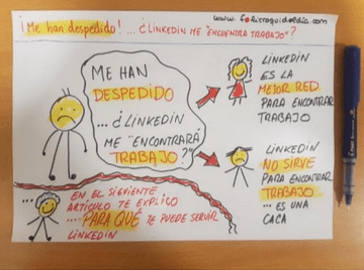 www.
¡Me han despedido! ... ¿LINKEDIN ME "ENCUENTRA TRABAJO"?
ME HAN
DESPEDIDO
... ¿LINKEDIN
ME "ENCONTRARÁ
TRABAJO?"
LINKEDIN
ES LA
MEJOR RED
PARA ENCONTRAR
TRABAJO
LINKEDIN
NO SIRVE
PARA ENCONTRAR
TRABAJO
... ES UNA
CACA
EN EL SIGUIENTE
ARTÍCULO TE EXPLICO
.... PARA QUÉ TE PUEDE SERVIR
LINKEDIN